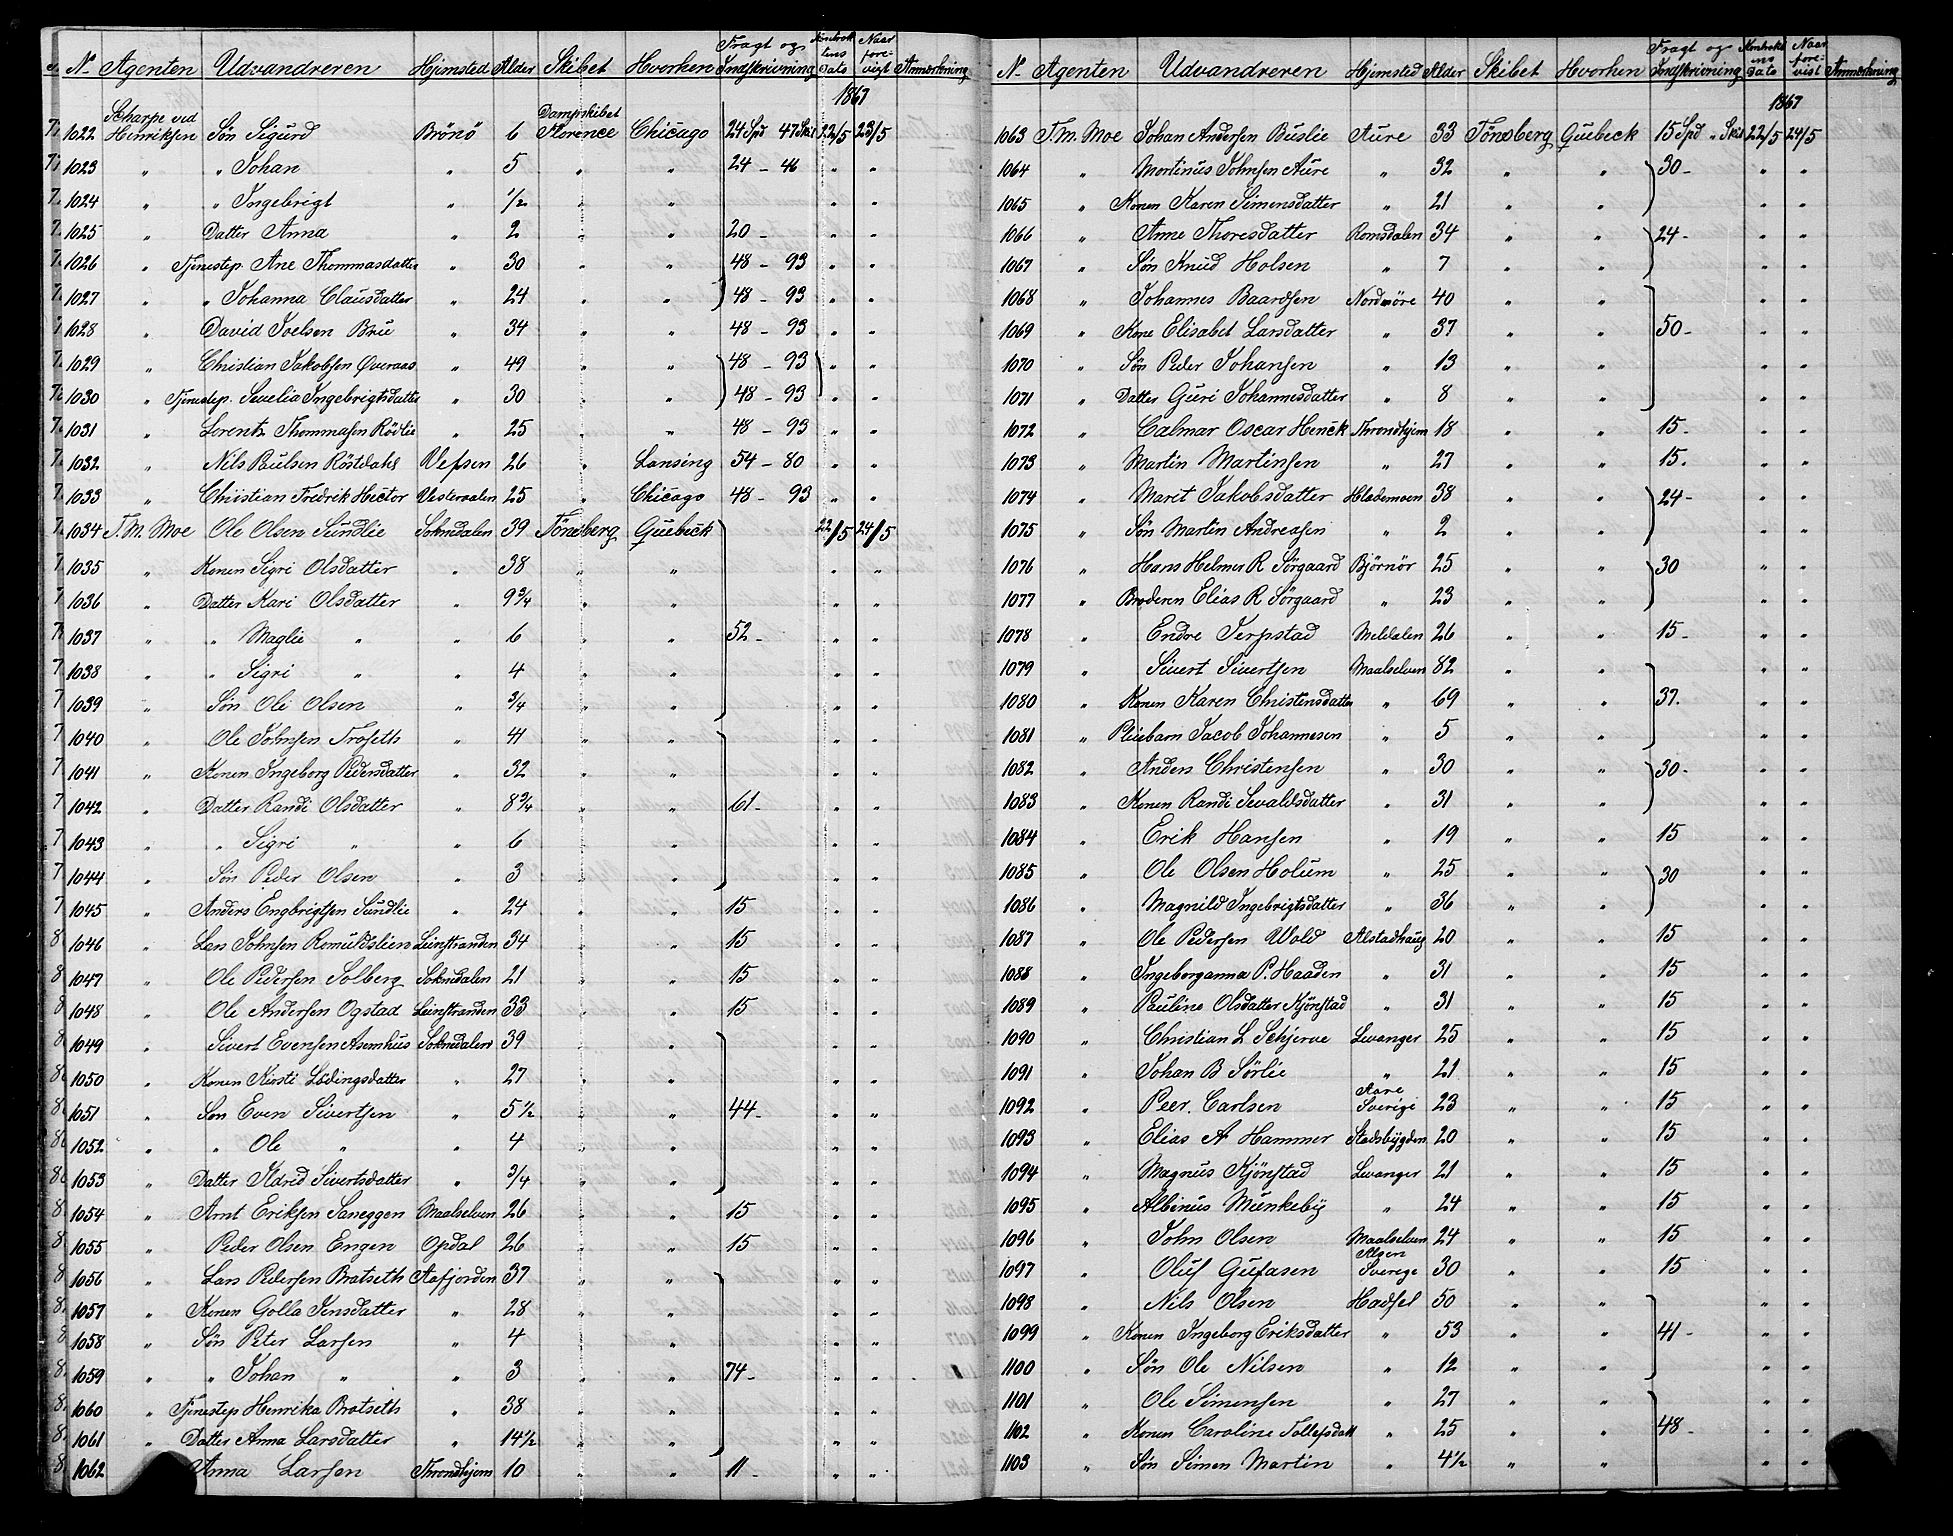 No Agenten Udvandreren Hjemsted Alder Skibet Hvorhen Fragt og Indskrivning Kontraktens Dato Naar forevist Anmærkning
1867
1022 Scharpe ved Henriksen Søn Sigurd Brönö 6 Dampskibet Florence Chicago 24 Spd 47 Skil 22/5 23/5
1023 " " Johan " 5 " " 24 - 46 " "
1024 " " Ingebrigt " 1/2 " " " "
1025 " Datter Anna " 2 " " 20 - " "
1026 " Tjenestep. Ane Thommasdatter " 30 " " 48 - 93 " "
1027 " " Johanna Clausdatter " 24 " " 48 - 93 " "
1028 " David Joelsen Bru " 34 " " 48 - 93 " "
1029 " Christian Jakobsen Øveraas " 49 " " 48 - 93 " "
1030 " Tjenestep. Sevelia Ingebrigtsdatter " 30 " " 48 - 93 " "
1031 " Lorentz Thommasen Rödlie " 25 " " 48 - 93 " "
1032 " Nils Paulsen Röstdahl Vefsen 26 " Lansing 54 - 80 " "
1033 " Christian Fredrik Hector Vesteraalen 25 " Chicago 48 - 93 " "
1034 T. M. Moe Ole Olsen Sundlie Soknedalen 39 Tönsberg Quebeck 22/5 24/5
1035 " Konen Sigri Olsdatter " 38 " " " "
1036 " Datter Kari Olsdatter " 9 3/4 " " " "
1037 " " Maglie " " 6 " " 52 - " "
1038 " " Sigri " " 4 " " " "
1039 " Søn Ole Olsen " 3/4 " " " "
1040 " Ole Johnsen Froseth " 41 " " " "
1041 " Konen Ingeborg Pedersdatter " 32 " " " "
1042 " Datter Randi Olsdatter " 8 3/4 " " 61 - " "
1043 " " Sigri " " 6 " " " "
1044 " Søn Peder Olsen " 3 " " " "
1045 " Anders Engbrigtsen Sundlie " 24 " " 15 " "
1046 " Lars Johnsen Romuldslien Leinstranden 34 " " 15 " "
1047 " Ole Pedersen Solberg Soknedalen 21 " " 15 " "
1048 " Ole Andersen Ogstad Leinstranden 33 " " 15 " "
1049 " Sivert Evensen Asemhus Soknedalen 39 " " " "
1050 " Konen Kirsti Lödingsdatter " 27 " " " "
1051 " Søn Even Sivertsen " 5 1/2 " " 44 - " "
1052 " " Ole " " 4 " " " "
1053 " Datter Ildrid Sivertsdatter " 3/4 " " " "
1054 " Arnt Eriksen Saneggen Maalselven 26 " " 15 " "
1055 " Peder Olsen Engen Opdal 26 " " 15 " "
1056 " Lars Pedersen Bratseth Aafjorden 37 " " " "
1057 " Konen Golla Jensdatter " 28 " " " "
1058 " Søn Peter Larsen " 4 " " " "
1059 " " Johan " " 3 " " 74 - " "
1060 " Tjenestep Henrika Bratseth " 38 " " " "
1061 " Datter Anna Larsdatter " 14 1/2 " " " "
1062 Anna Larsen Throndhjem 10 " " 11 - " "
No Agenten Udvandreren Hjemsted Alder Skibet Hvorhen Fragt og Indskrivning Kontraktens Dato Naar forevist Anmærkning
1867
1063 T. M. Moe Johan Andersen Buslie Aure 33 Tönsberg Quebeck 15 Spd " Skil 22/5 24/5
1064 " Martinus Johnsen Aure " 32 " " 30 - " "
1065 " Konen Karen Simensdatter " 21 " " " "
1066 " Anne Thoresdatter Romsdalen 34 " " 24 - " "
1067 " Søn Knud Holsen " 7 " " " "
1068 " Johannes Baardsen Nordmöre 40 " " " "
1069 " Kone Elisabet Larsdatter " 37 " " 50 - " "
1070 " Søn Peder Johansen " 13 " " " "
1071 " Datter Guri Johannesdatter " 8 " " " "
1072 " Calmar Oscar Henck Throndhjem 18 " " 15 - " "
1073 " Martin Martinsen " 27 " " 15. " "
1074 " Marit Jakobsdatter Hlademoen 38 " " 24 - " "
1075 " Søn Martin Andreasen " 2 " " " "
1076 " Hans Helmer R Sörgaard Björnör 25 " " 30 " "
1077 " Broderen Elias R Sörgaard " 23 " " " "
1078 " Endre Jerpstad Meldalen 26 " " 15 - " "
1079 " Sivert Sivertsen Maalselven 82 " " " "
1080 " Konen Karen Christensdatter " 69 " " 37. " "
1081 " Pleiebarn Jacob Johannesen " 5 " " " "
1082 " Anders Christensen " 30 " " 30 - " "
1083 " Konen Randi Sevaldsdatter " 31 " " " "
1084 " Erik Hansen " 19 " " 15 " "
1085 " Ole Olsen Holum " 25 " " 30 " "
1086 " Magnild Ingebrigtsdatter " 36 " " " "
1087 " Ole Pedersen Wold Alstadhaug 20 " " 15 " "
1088 " Ingeborganna P. Haaden " 31 " " 15 " "
1089 " Pauline Olsdatter Kjönstad " 31 " " 15 " "
1090 " Christian L Schjerve Levanger 25 " " 15 " "
1091 " Johan B Sörlie " 21 " " 15 " "
1092 " Peer Carlsen Aare Sverige 23 " " 15 " "
1093 " Elias A Hammer Stadsbygden 20 " " 15 " "
1094 " Magnus Kjönstad Levanger 21 " " 15 " "
1095 " Albinus Munkeby " 24 " " 15 " "
1096 " John Olsen Maalselven 24 " " 15 " "
1097 " Oluf Gufasen Alsen Sverege 30 " " 15 " "
1098 " Nils Olsen Hadsel 50 " " " "
1099 " Konen Ingeborg Eriksdatter " 53 " " 41 - " "
1100 " Søn Ole Nilsen " 12 " " " "
1101 " Ole Simensen " 27 " " " "
1102 " Konen Caroline Tollefsdatt " 25 " " 48 - " "
1103 " Søn Simen Martin " 4 1/2 " " " "